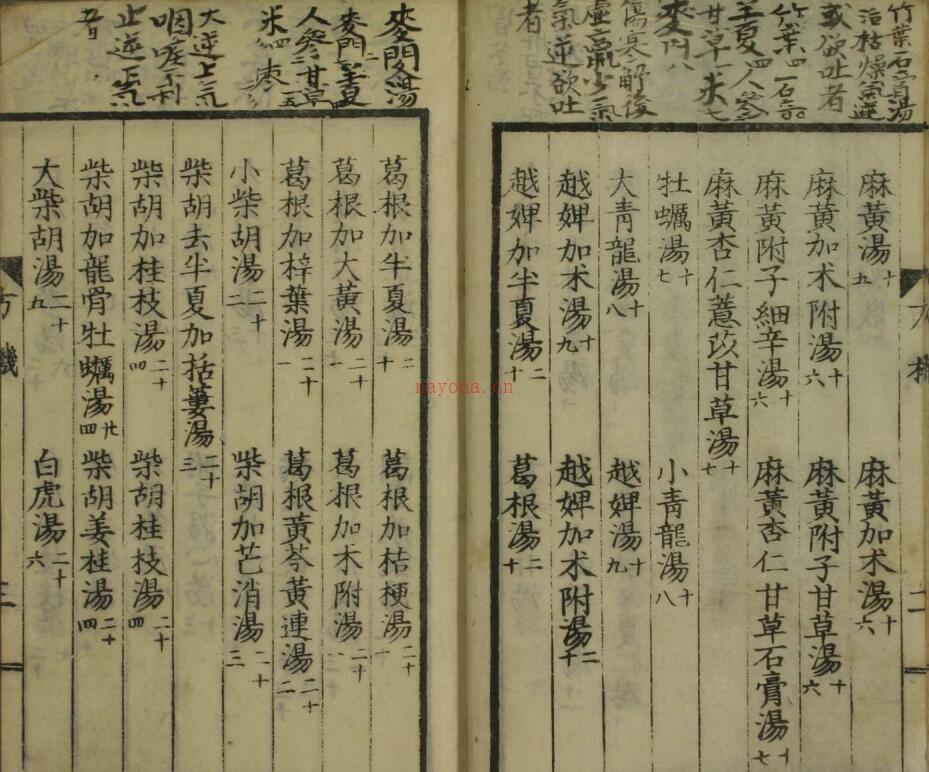 竹葉石膏湯
治枯燥氣逆
或欲吐者
竹葉四 石膏
半夏四 人參
甘草一 米七
麥門八
傷寒解後
虛羸少氣
氣逆欲吐
者
麻黃湯十五 麻黃加术湯十六
麻黃加术附湯十六 麻黃附子甘草湯十六
麻黃附子細辛湯十六 麻黃杏仁甘草石膏湯十七
麻黃杏仁薏苡甘草湯十七
牡蠣湯十七 小青龍湯十八
大青龍湯十八 越婢湯十九
越婢加术湯十九 越婢加术附湯二十
越婢加半夏湯二十 葛根湯二十
方機 二
麥門湯
麥門 半夏
人參二 甘草
米 棗
大逆上氣
咽喉不利
止逆下氣
者
葛根加半夏湯 葛根加桔梗湯二十一
葛根加大黃湯二十一 葛根加术附湯二十
葛根加梓葉湯二十一 葛根黃芩黃連湯二十二
小柴胡湯二十二 柴胡加芒消湯二十三
柴胡去半夏加括蔞湯二十三
柴胡加桂枝湯二十四 柴胡桂枝湯二十四
柴胡加龍骨牡蠣湯廿四 柴胡姜桂湯二十四
大柴胡湯二十五 白虎湯二十六
方機 三
nayona.cn